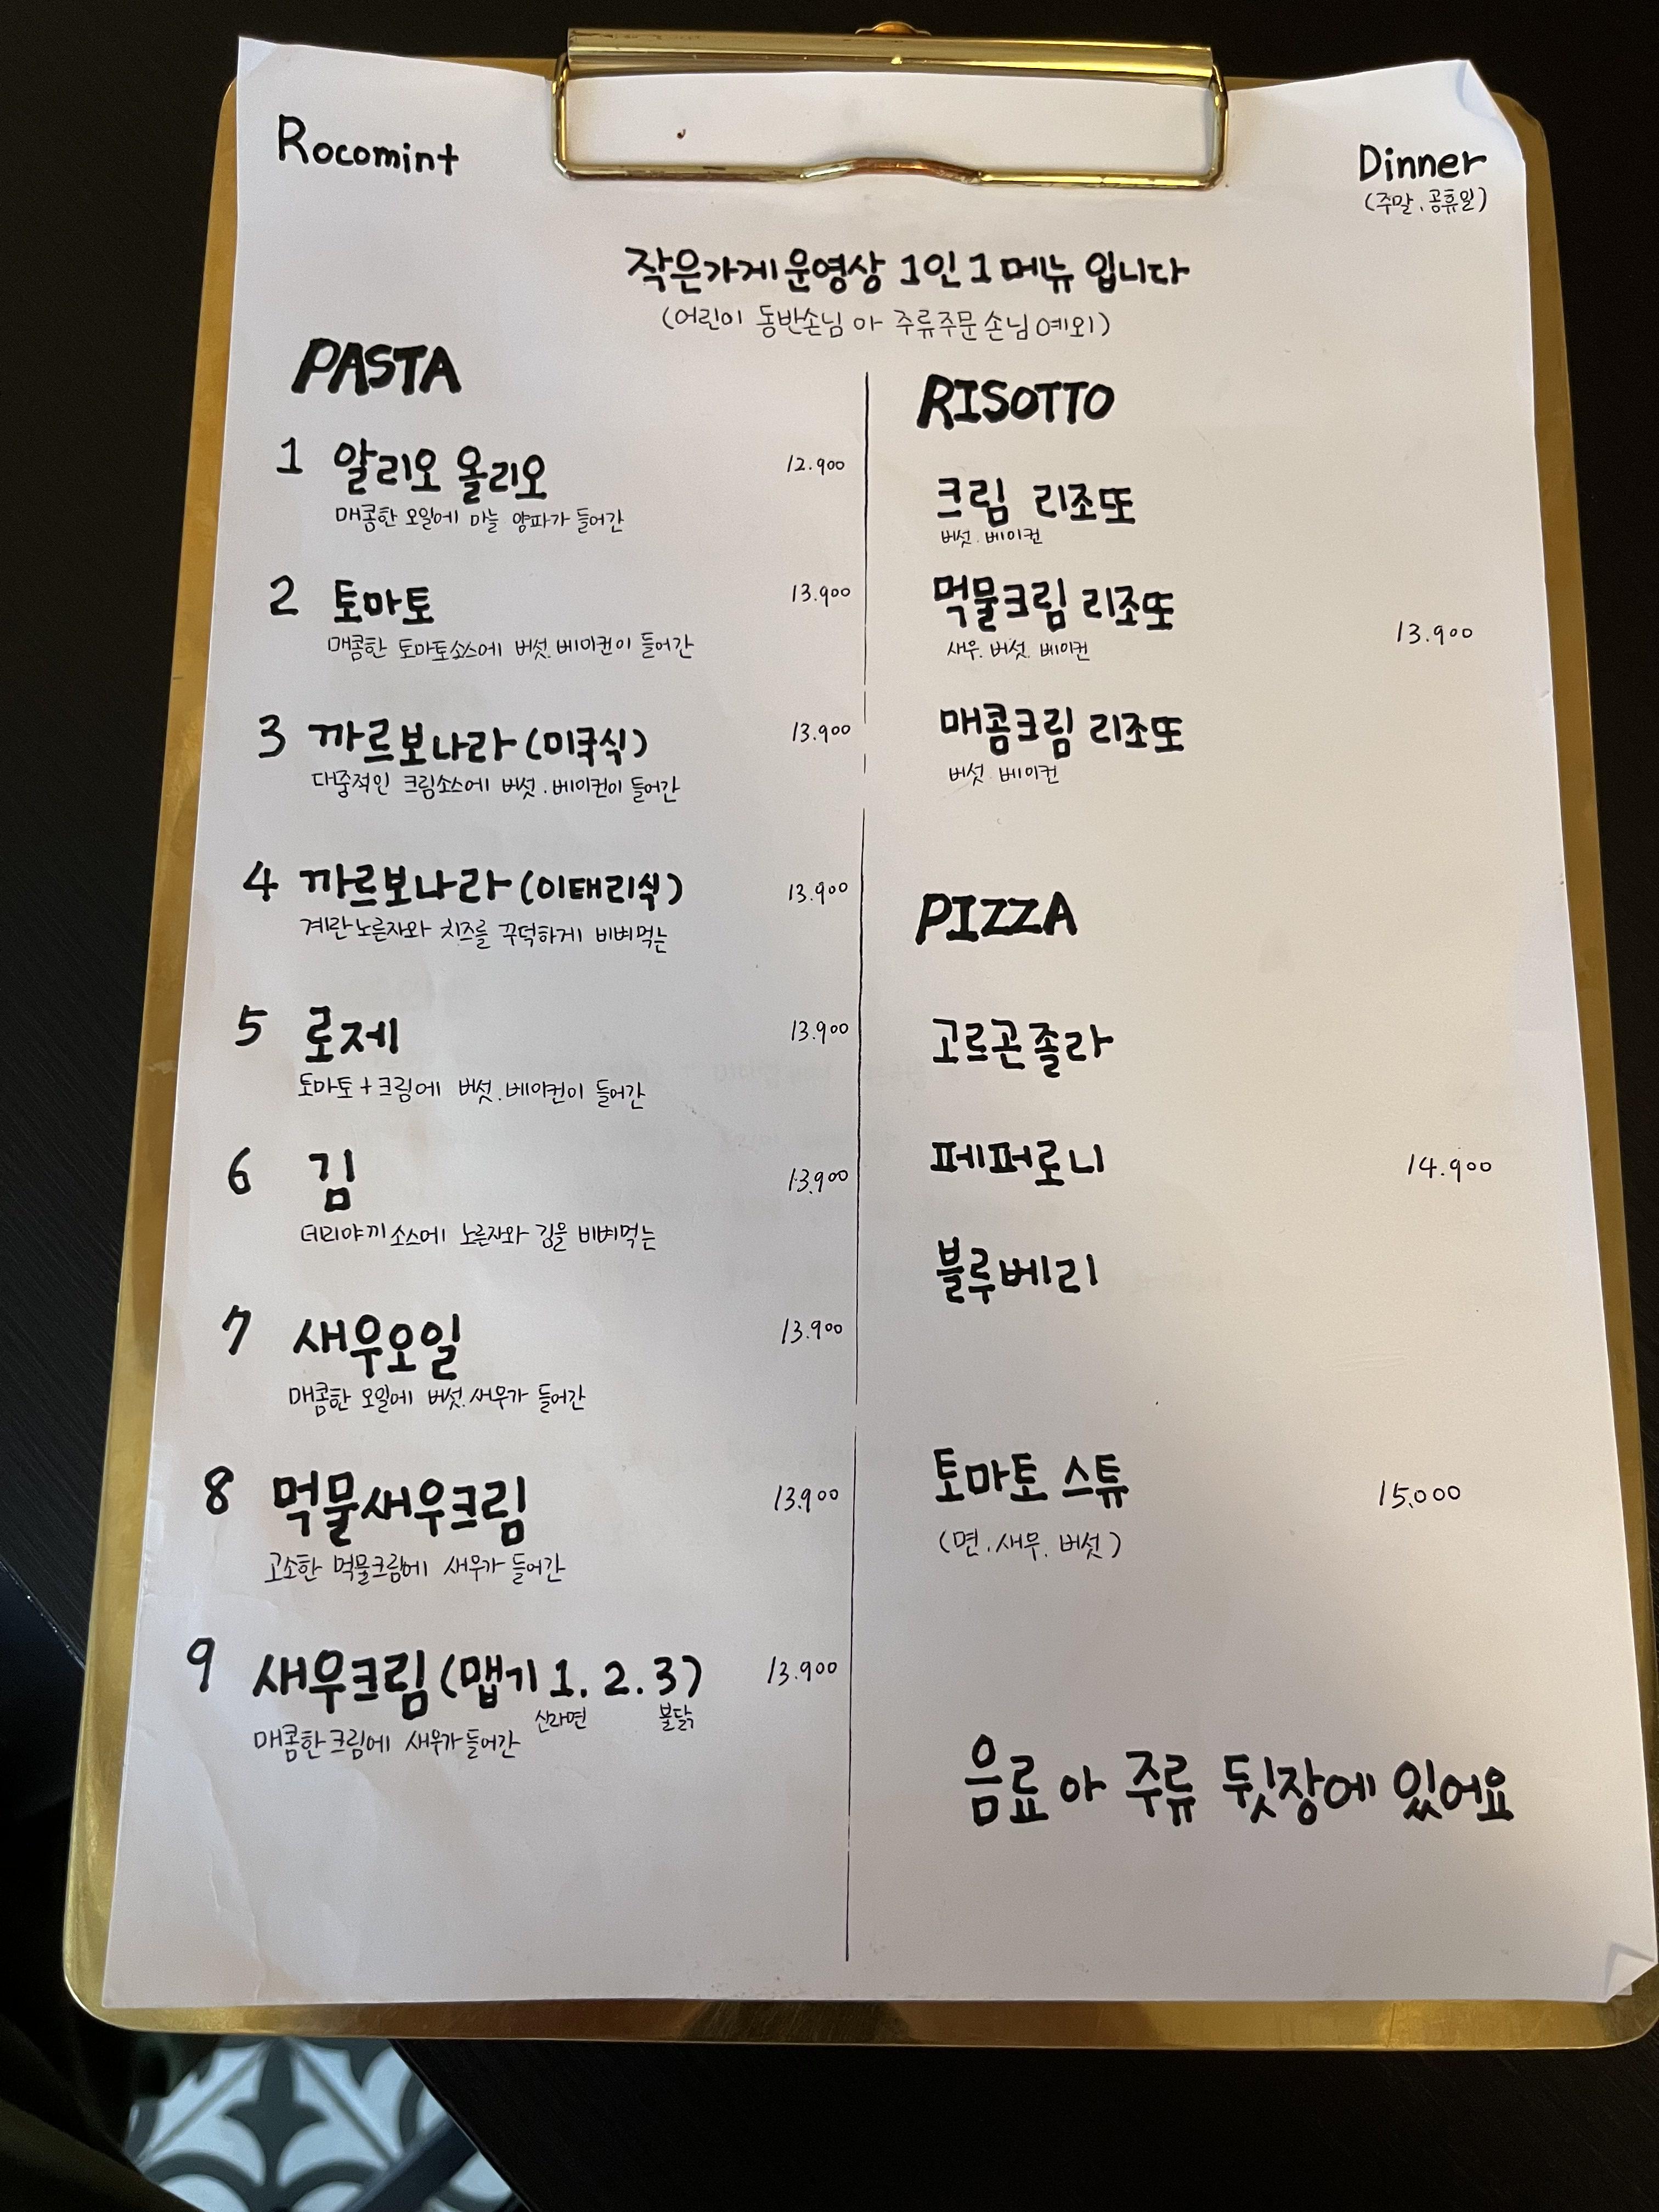 Rocomint
Dinner
(주말.공휴일)
작은가게 운영상 1인 1메뉴 입니다
(어린이 동반손님 아 주류주문 손님 예외)
PASTA
1 알리오 올리오 12.900
매콤한 오일에 마늘 양파가 들어간
2 토마토 13.900
매콤한 토마토소스에 버섯.베이컨이 들어간
3 까르보나라 (미국식) 13.900
대중적인 크림소스에 버섯.베이컨이 들어간
4 까르보나라 (이태리식) 13.900
계란노른자와 치즈를 꾸덕하게 비벼먹는
5 로제 13.900
토마토+크림에 버섯.베이컨이 들어간
6 김 13.900
데리야끼소스에 노른자와 김을 비벼먹는
7 새우오일 13.900
매콤한 오일에 버섯.새우가 들어간
8 먹물새우크림 13.900
고소한 먹물크림에 새우가 들어간
9 새우크림 (맵기 1. 2. 3) 13.900
신라면 불닭
매콤한크림에 새우가들어간
RISOTTO
크림 리조또
버섯.베이컨
먹물크림 리조또 13.900
새우.버섯.베이컨
매콤크림 리조또
버섯.베이컨
PIZZA
고르곤졸라
페퍼로니 14.900
블루베리
토마토 스튜 15.000
(면.새우.버섯)
음료 아 주류 뒷장에 있어요